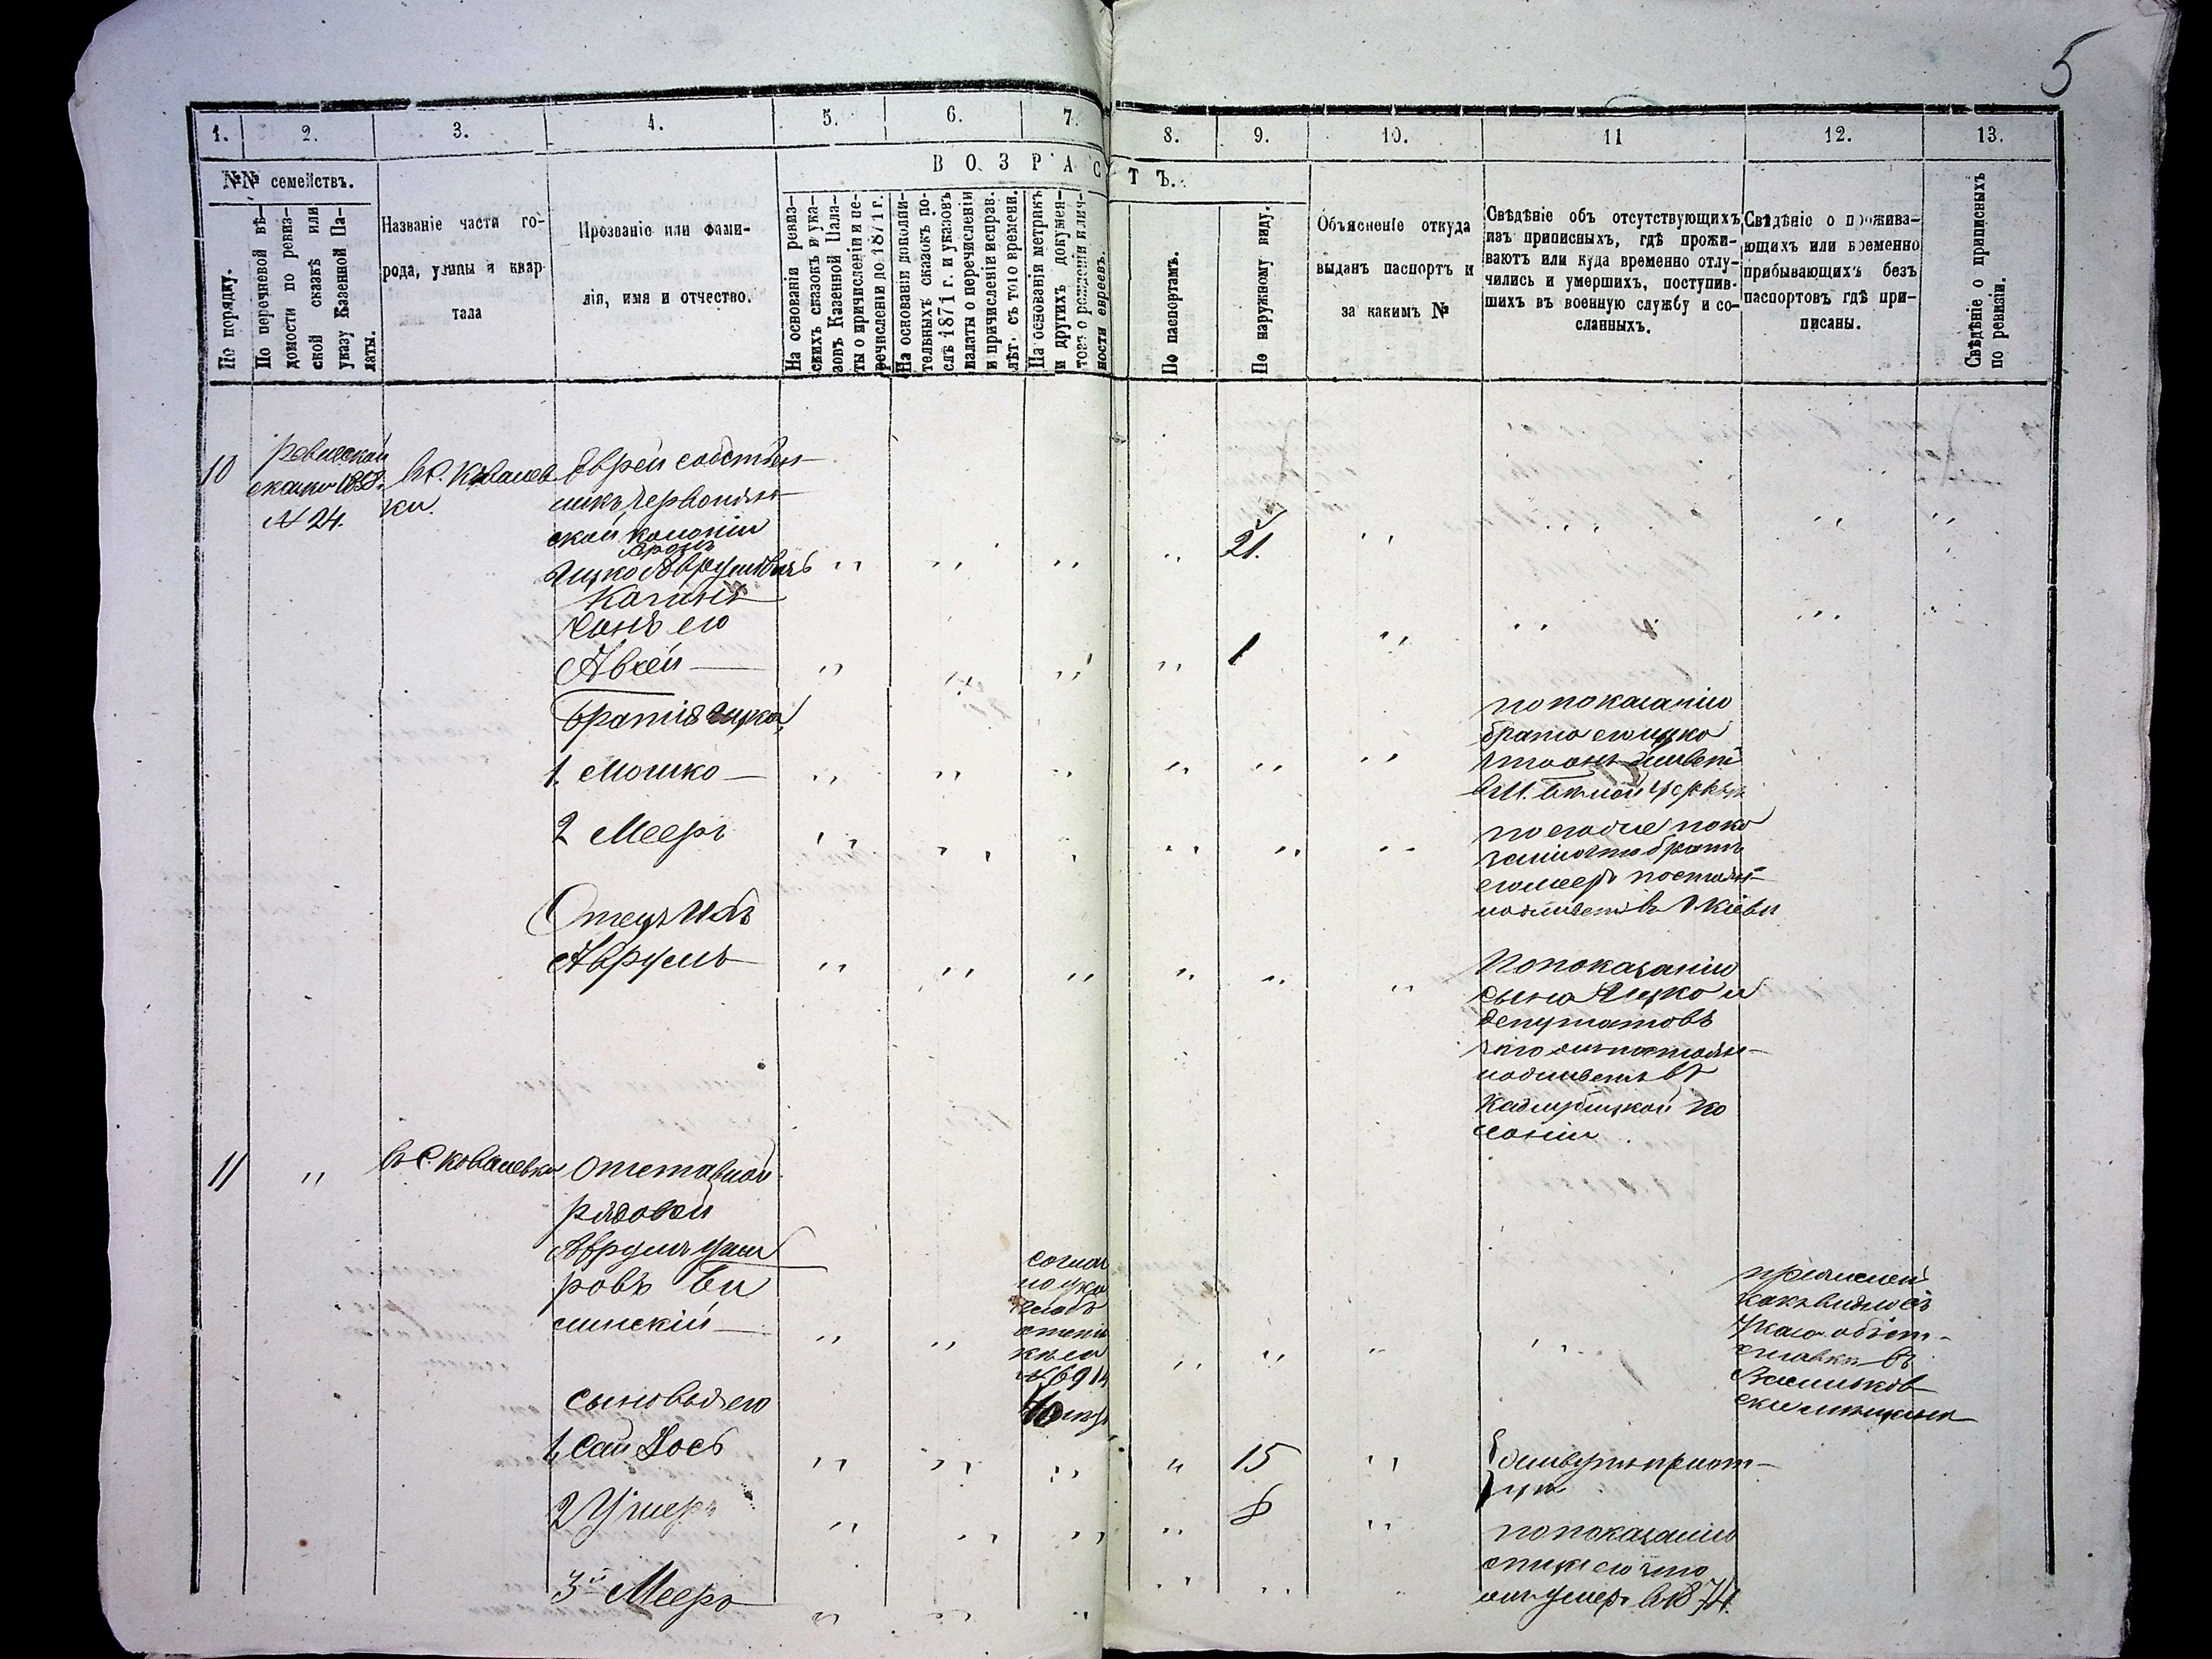 5
1. 2. 3. 4. 5. 6. 7. 8. 9. 10. 11 12. 13.
№№ семействъ.
В О З Р А С Т Ъ.
По порядку.
По перечневой вѣ-
домости по ревиз-
ской сказкѣ или
указу Казенной Па-
латы.
Названіе части го-
рода, улицы и квар-
тала
Прозваніе или фами-
лія, имя и отчество.
На основаніи ревиз-
скихъ сказокъ и ука-
зовъ Казенной Пала-
ты о причисленіи и пе-
речисленіи до 1871 г.
На основаніи дополни-
тельныхъ сказокъ по-
слѣ 1871 г. и указовъ
палаты о перечисленіи
и причисленіи исправ.
лѣт. съ того времени.
На основаніи метрикъ
и другихъ докумен-
товъ о рожденіи и лич-
ности евреевъ.
По паспортамъ.
По наружному виду.
Объясненіе откуда
выданъ паспортъ и
за какимъ №
Свѣдѣніе объ отсутствующихъ
изъ приписныхъ, гдѣ прожи-
ваютъ или куда временно отлу-
чились и умершихъ, поступив-
шихъ въ военную службу и со-
сланныхъ.
Свѣдѣніе о прожива-
ющихъ или временно
прибывающихъ безъ
паспортовъ гдѣ при-
писаны.
Свѣдѣніе о приписныхъ
по ревизіи.
10
ревизской
сказки 1858.
№ 24.
въ с. Ковалев-
ки.
Евреи собствен-
никъ
ской колоніи
Аронъ
Ицко Аврумовичъ
Каганъ
сынъ его
21.
1
Братія Ицка
1. Мошко
по показанію
брата его Ицко
что онъ живетъ
в м. Бѣлой Церкви
2 Мееръ
по его же пока
занію что братъ
его Мееръ постоян-
но живетъ въ г. Кіеви
Отецъ ихъ
Аврумъ
По показанію
сына Ицко и
депутатовъ
что онъ постоян-
но живетъ въ
Кадлубицкой ко
лоніи.
11
в с. Ковалевки
Отставной
рядовой
Аврумъ Уше
ровъ Би
линскій
соглас
но ука
за объ
№ 6914
40
как видно съ
указа объ от-
ставки въ
Васильков-
сыновья его
1, Сай Іось
15
живутъ при от-
цѣ
2 Ушеръ
8
3й Мееръ
по показанію
отца его что
онъ умеръ в 1874.